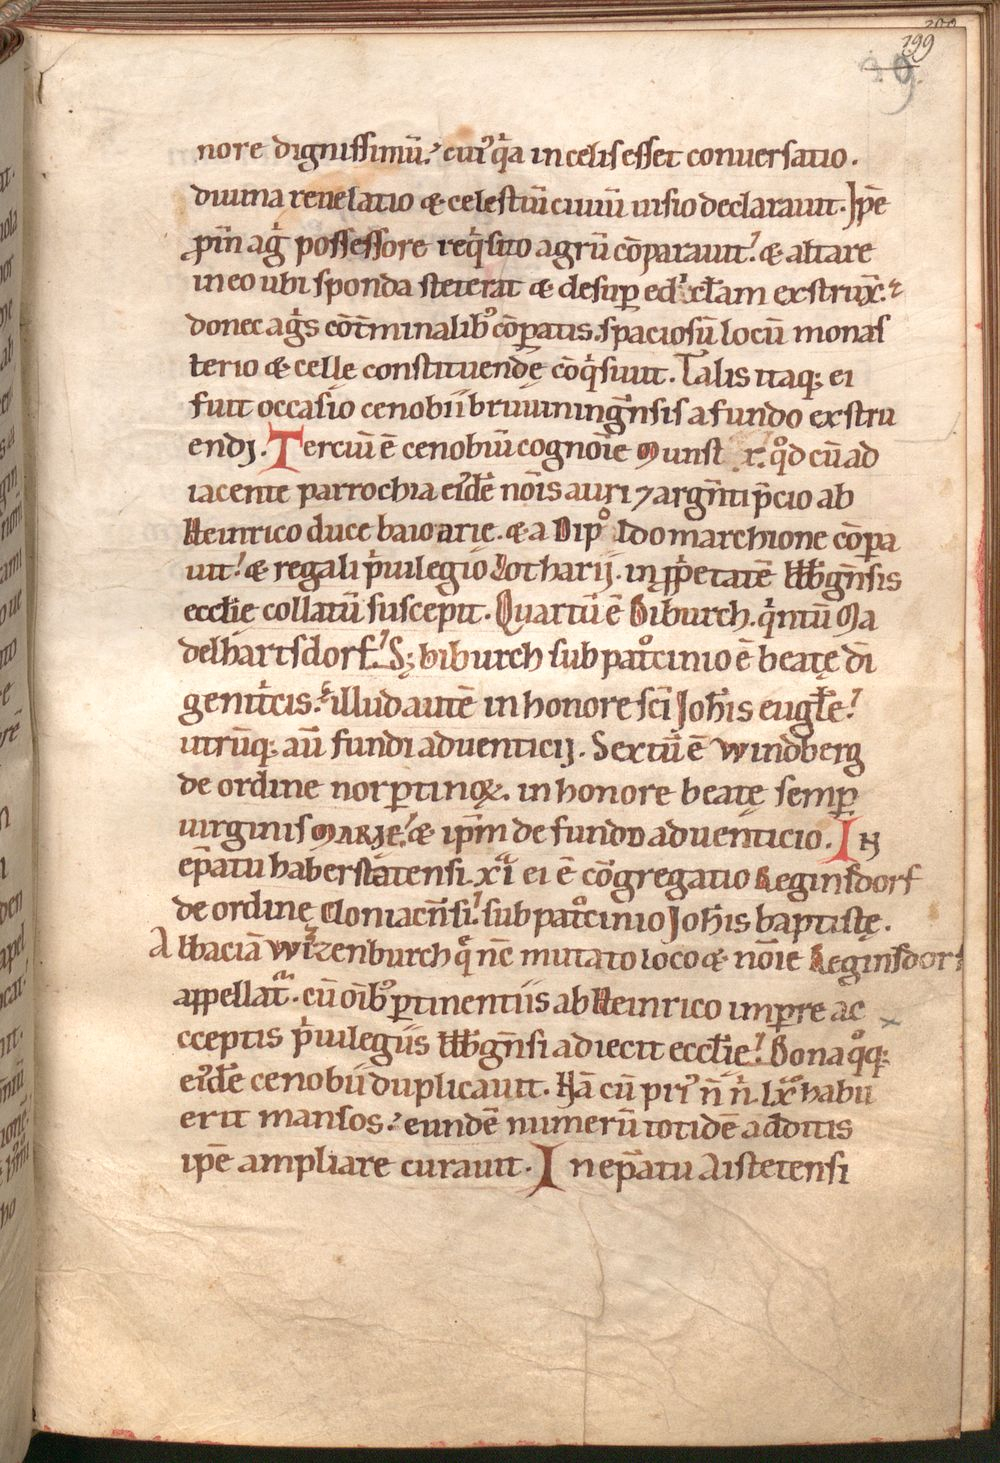 200
199
99.
nore dignissimū. cuı᷒ qͥa in celis esset conuersatio.
diuina reuelatio & celestiū ciuiū uisio declarauit. Ip̄e
p̱in aḡ possessore reqͥsito agrū cōparauit. & altare
in eo ubi sponda steterat & desup̱ ed᷒ eccl̄am exstrux̄.
donec agͥs cōt̄minalib᷒ cōp̱atis. spaciosū locū monas
terio & celle constituendę cōqͥsiuit. Talis itaq; ei
fuit occasio cenobii biuuiningn̄sis a fundo exstru
endj. Terciū ē cenobiū cognoīe Munst r. qͦd cū ad
iacente parrochia eı᷒dē nōis auri ⁊ argn̄ti p̄cio ab
Heinrico duce baioarie. & a Dipoldo marchione cōpa
uit. & regali pͥuilegio Lotharij. in ꝓp̱etatē bbb̄gn̄sis
eccl̄ie collatū suscepit. Quartū ē Biburch. qͥntū Ma
delhartsdorf. S; biburch sub patͦcinio ē beatę dī
genitͥcis. illud autē in honore sc̄i Joh̄is eugl̄e.
utrūq; aū fundi aduenticij. Sextū ē windberg
de ordine norp̱tinoꝝ. in honore beatę semp̱
uirginis MARJE. & ip̄m de fundo aduenticio. In
ep̄atu haberstatensi. xi ei ē cōgregatio Reginsdorf
de ordinę Cloniacn̄si. sub patͦcinio Joh̄is baptistę.
Abbaciā wizenburch q̄ nc̄ mutato loco & noīe Reginsdorf
appellat̄. cū oīb᷒ p̱tinentiis ab Heinrico imp̱re ac
cceptis pͥuilegiis bbb̄gn̄si adiecit eccl̄ie. Bona qͦq;
eı᷒dē cenobii duplicauit. Nā cū pri᷒ n̄ nͥ. lxͣ habu
erit mansos. eundē numerū totidē additis
ip̄e ampliare curauit. In ep̄atu Aistetensi